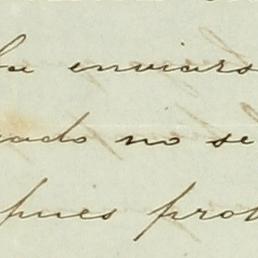 ba enviars
ado no se
pues prot